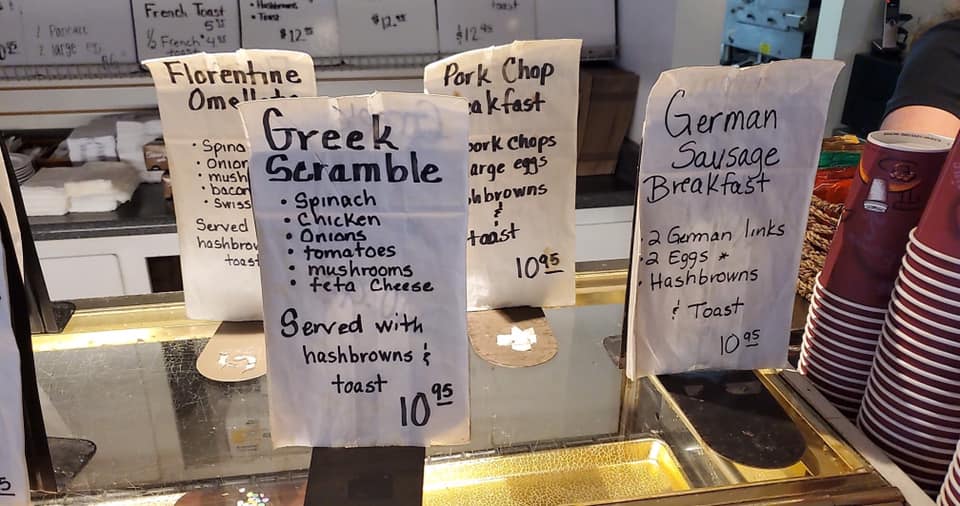 French Toast
5
½ French 4
toast
1 Pancake
2 large
Hashbrowns
Toast
$12
$12
toast
$12
Florentine
Omelete
• Spina
• Onion
• mush
• bacon
• Swiss
Served
hashbrow
toast
Greek
Scramble
• Spinach
• Chicken
• Onions
• tomatoes
• mushrooms
• feta Cheese
Served with
hashbrowns &
toast
10 95
Pork Chop
eakfast
pork Chops
arge eggs
hbrowns
&
toast
10 95
German
Sausage
Breakfast
• 2 German links
• 2 Eggs *
• Hashbrowns
& Toast
10 95
5